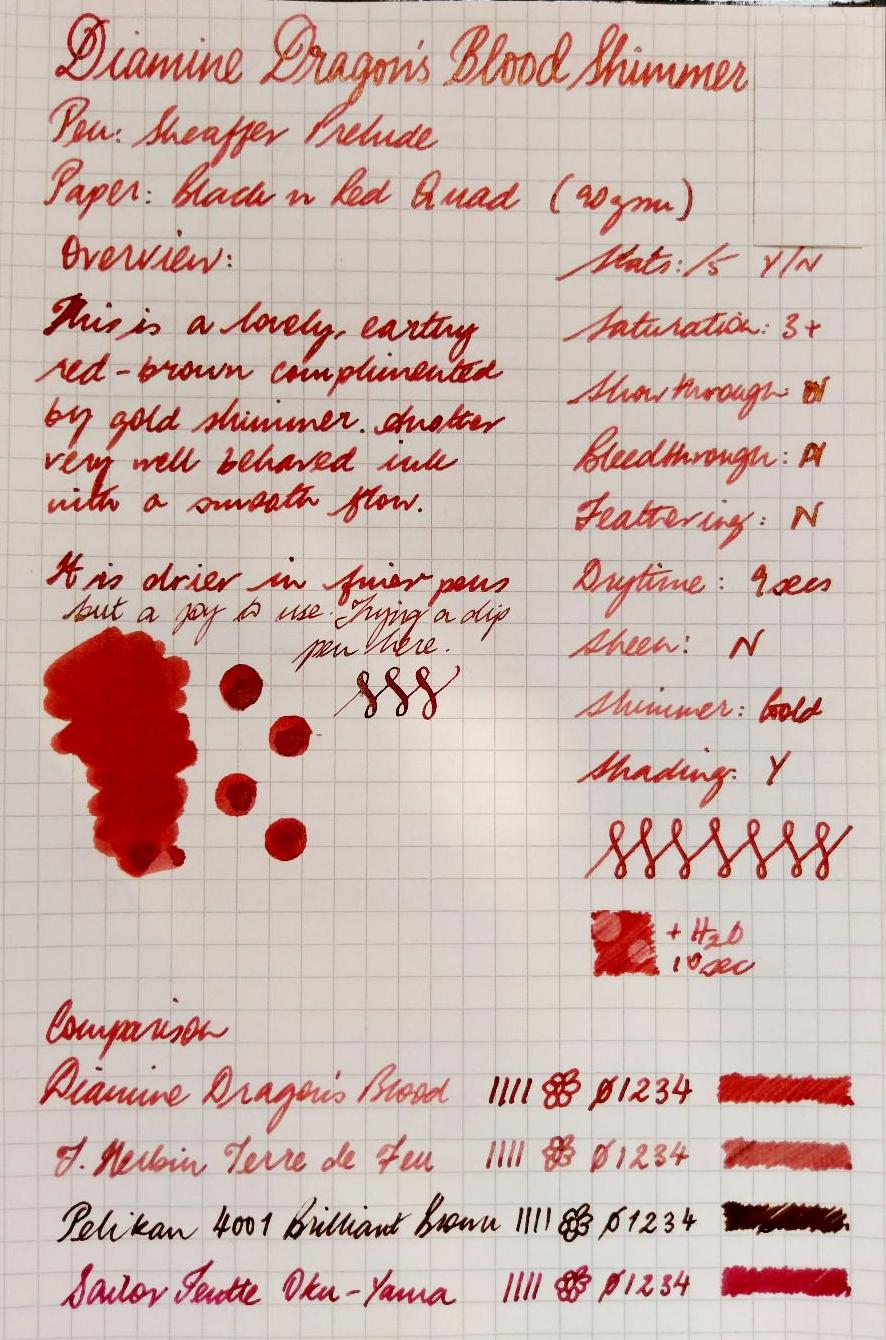 Diamine Dragon's Blood Shimmer
Pen: Sheaffer Prelude
Paper: Black n Red Quad (90gsm)
Overview:
This is a lovely, earthy
red-brown complimented
by gold shimmer. Another
very well behaved ink
with a smooth flow.
It is drier in finer pens
but a joy to use. Trying a dip
pen here.
Stats: /5 Y/N
Saturation: 3+
Showthrough: N
Bleedthrough: N
Feathering: N
Drytime: 9secs
Sheen: N
Shimmer: Gold
Shading: Y
+ H2O
10sec
Comparison
Diamine Dragon's Blood 01234
J. Herbin Terre de Feu 01234
Pelikan 4001 Brilliant Brown 01234
Sailor Oku-Yama 01234